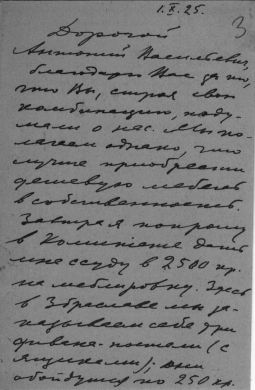 1.X.25.
3
Дорогой
Антоний Васильевич,
благодарю Вас за то,
что Вы, строя свои
комбинации, поду-
мали о нас. Мы по-
лагаем однако, что
лучше приобрести
дешевую мебель
в собственность.
Завтра я попрошу
в Комитете дать
мне ссуду в 2500 кр.
на меблировку. Здесь
в Збраславе мы за-
казываем себе три
дивана-постели (с
ящиками); они
обойдутся по 250 кр.